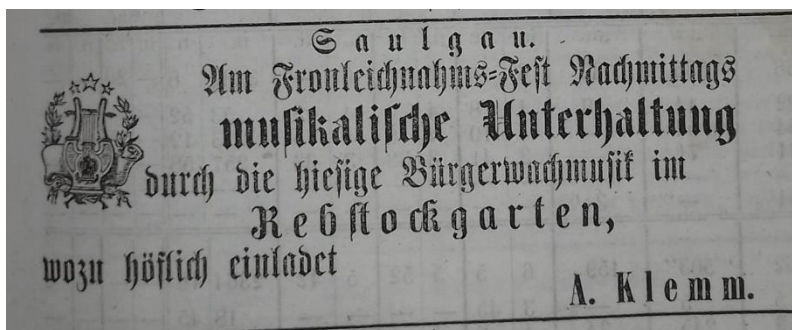 Saulgau.
Am Fronleichnahms-Fest Nachmittags
musikalische Unterhaltung
durch die hiesige Bürgerwachmusik im
Rebstockgarten,
wozu höflich einladet
A. Klemm.